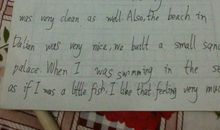 was very clean as well. Also, the beach in
Dalian was very nice, we built a small sand
palace. When I was swimming in the se
as if I was a little fish, I like that feeling very muc